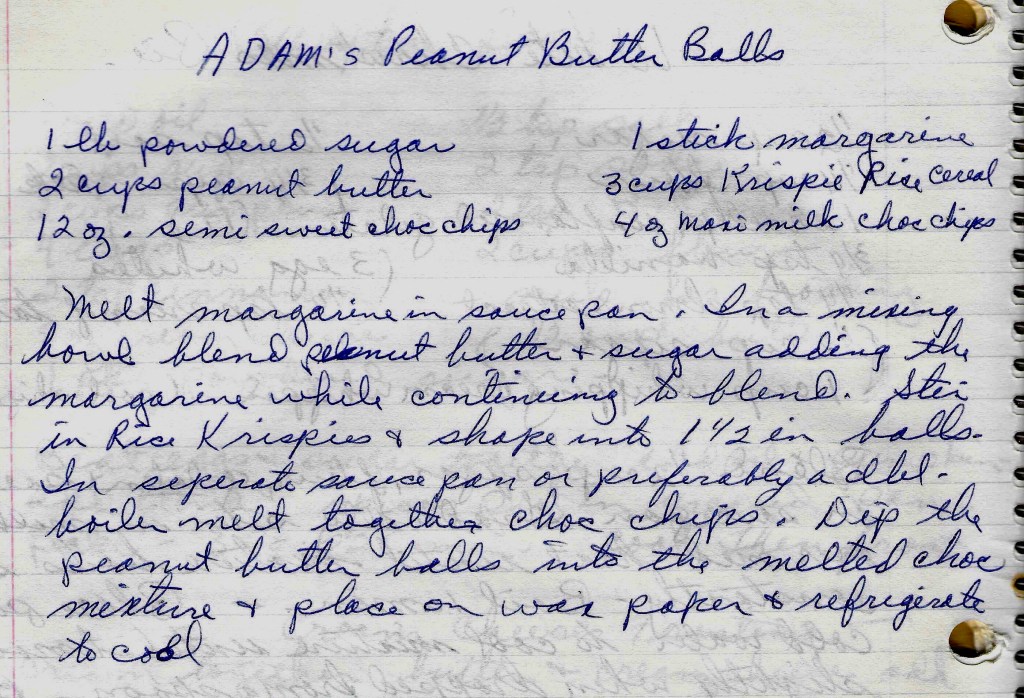 ADAM's Peanut Butter Balls
1 lb powdered sugar 1 stick margarine
2 cups peanut butter 3 cups Krispie Rice cereal
12 oz. semi sweet choc chips 4 oz maxi milk choc chips
Melt margarine in sauce pan. In a mixing
bowl blend peanut butter & sugar adding the
margarine while continuing to blend. Stir
in Rice Krispies & shape into 1 1/2 in balls.
In seperate sauce pan or preferably a dbl.
boiler melt together choc chips. Dip the
peanut butter balls into the melted choc
mixture & place on wax paper & refrigerate
to cool